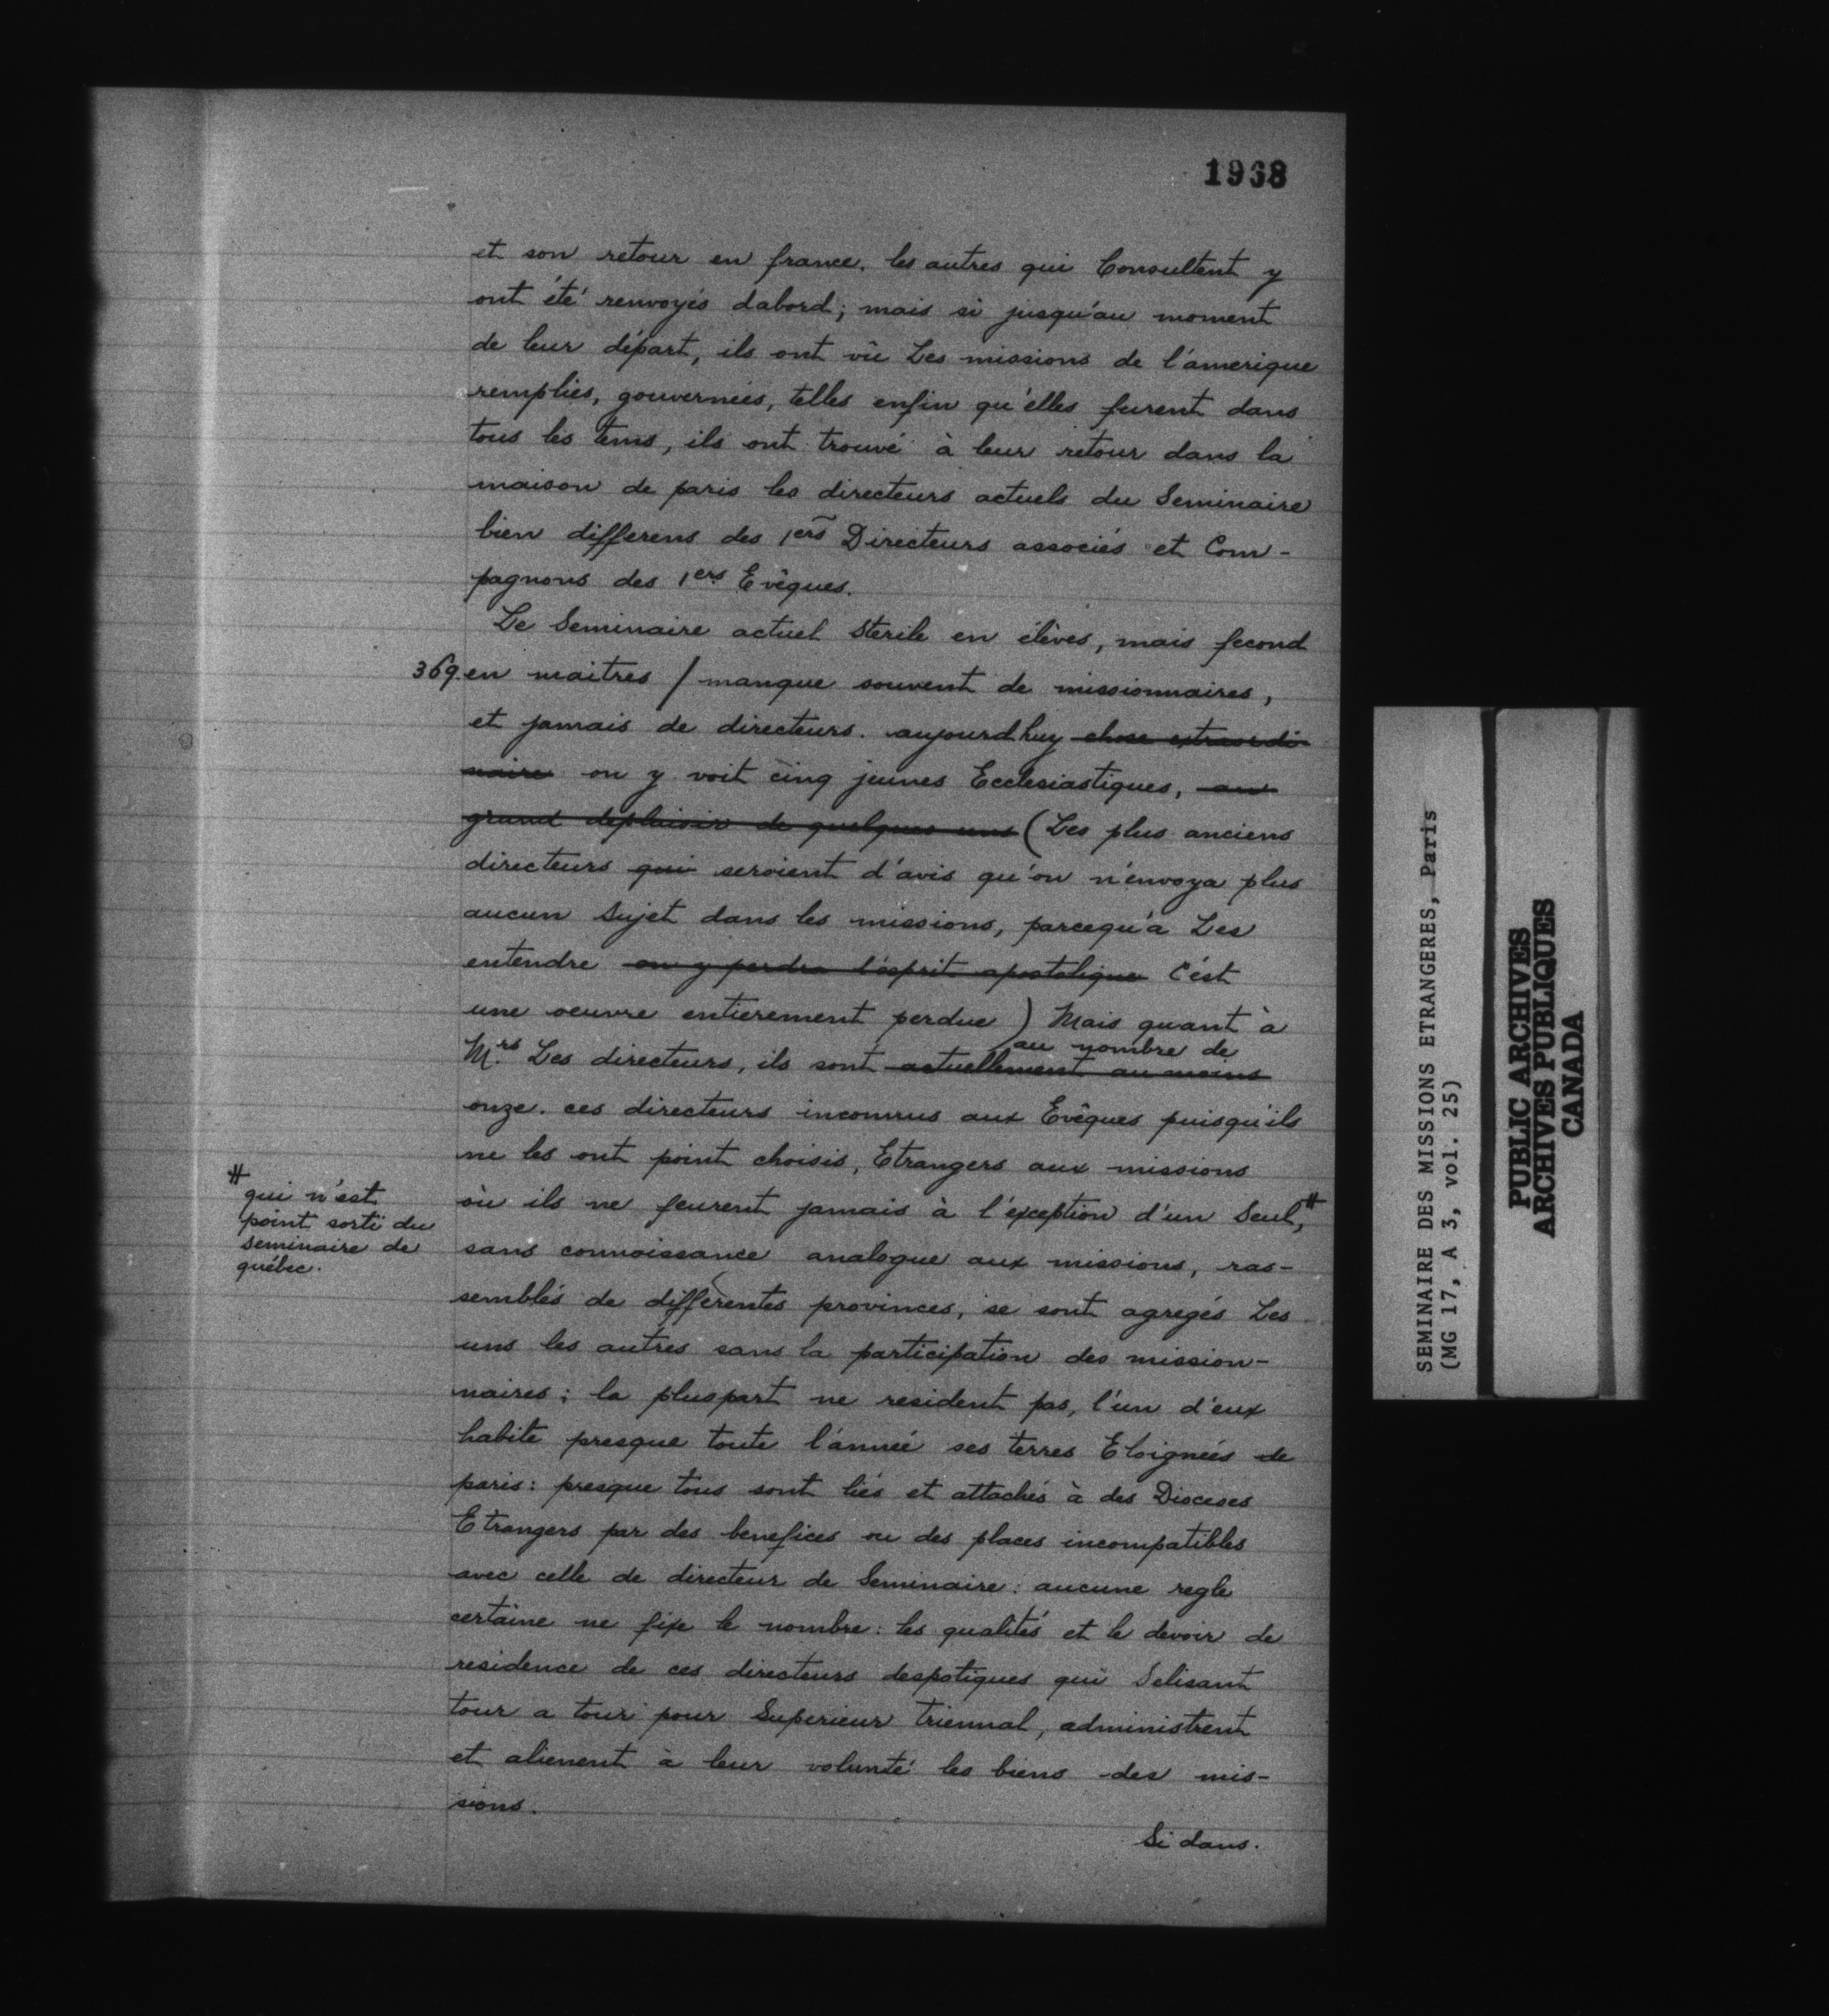 1968
et son retour en france. les autres qui Consultent y
ont été renvoyés dabord; mais si jusqu'au moment
de leur départ, ils ont vû Les missions de l'amerique
remplies, gouvernées, telles enfin qu'elles furent dans
tous les tems, ils ont trouvé à leur retour dans la
maison de paris les directeurs actuels du Seminaire
bien differens des 1ers Directeurs associés et Com-
pagnons des 1ers Evêques.
Le Seminaire actuel Sterile en élèves, mais fecond
369. en maitres / manque souvent de missionnaires,
et jamais de directeurs. aujourdhuy chose extraordi-
naire on y voit cinq jeunes Ecclesiastiques, au
grand deplaisir de quelques uns (Les plus anciens
directeurs qui seroient d'avis qu'on n'envoya plus
aucun Sujet dans les missions, parcequ'à Les
entendre on y perdra l'esprit apostolique C'ést
une oeuvre entierement perdue) Mais quant à
au nombre de
Mrs. Les directeurs, ils sont actuellement au moins
onze. ces directeurs inconnus aux Evêques puisqu'ils
ne les ont point choisis, Etrangers aux missions
où ils ne feurent jamais à l'exception d'un Seul,#
# qui n'est
point sorti du
seminaire de
québec.
sans connoissance analogue aux missions, ras-
semblés de differentes provinces, se sont agregés Les
uns les autres sans la participation des mission-
naires; la pluspart ne resident pas, l'un d'eux
habite presque toute l'année ses terres Eloignées de
paris: presque tous sont liés et attachés à des Dioceses
Etrangers par des benefices ou des places incompatibles
avec celle de directeur de Seminaire: aucune regle
certaine ne fixe le nombre: les qualités et le devoir de
residence de ces directeurs despotiques qui Selisant
tour a tour pour Superieur Triennal, administrent
et alienent à leur volunté les biens des mis-
sions.
Si dans.
SEMINAIRE DES MISSIONS ETRANGERES, Paris
(MG 17, A 3, vol. 25)
PUBLIC ARCHIVES
ARCHIVES PUBLIQUES
CANADA